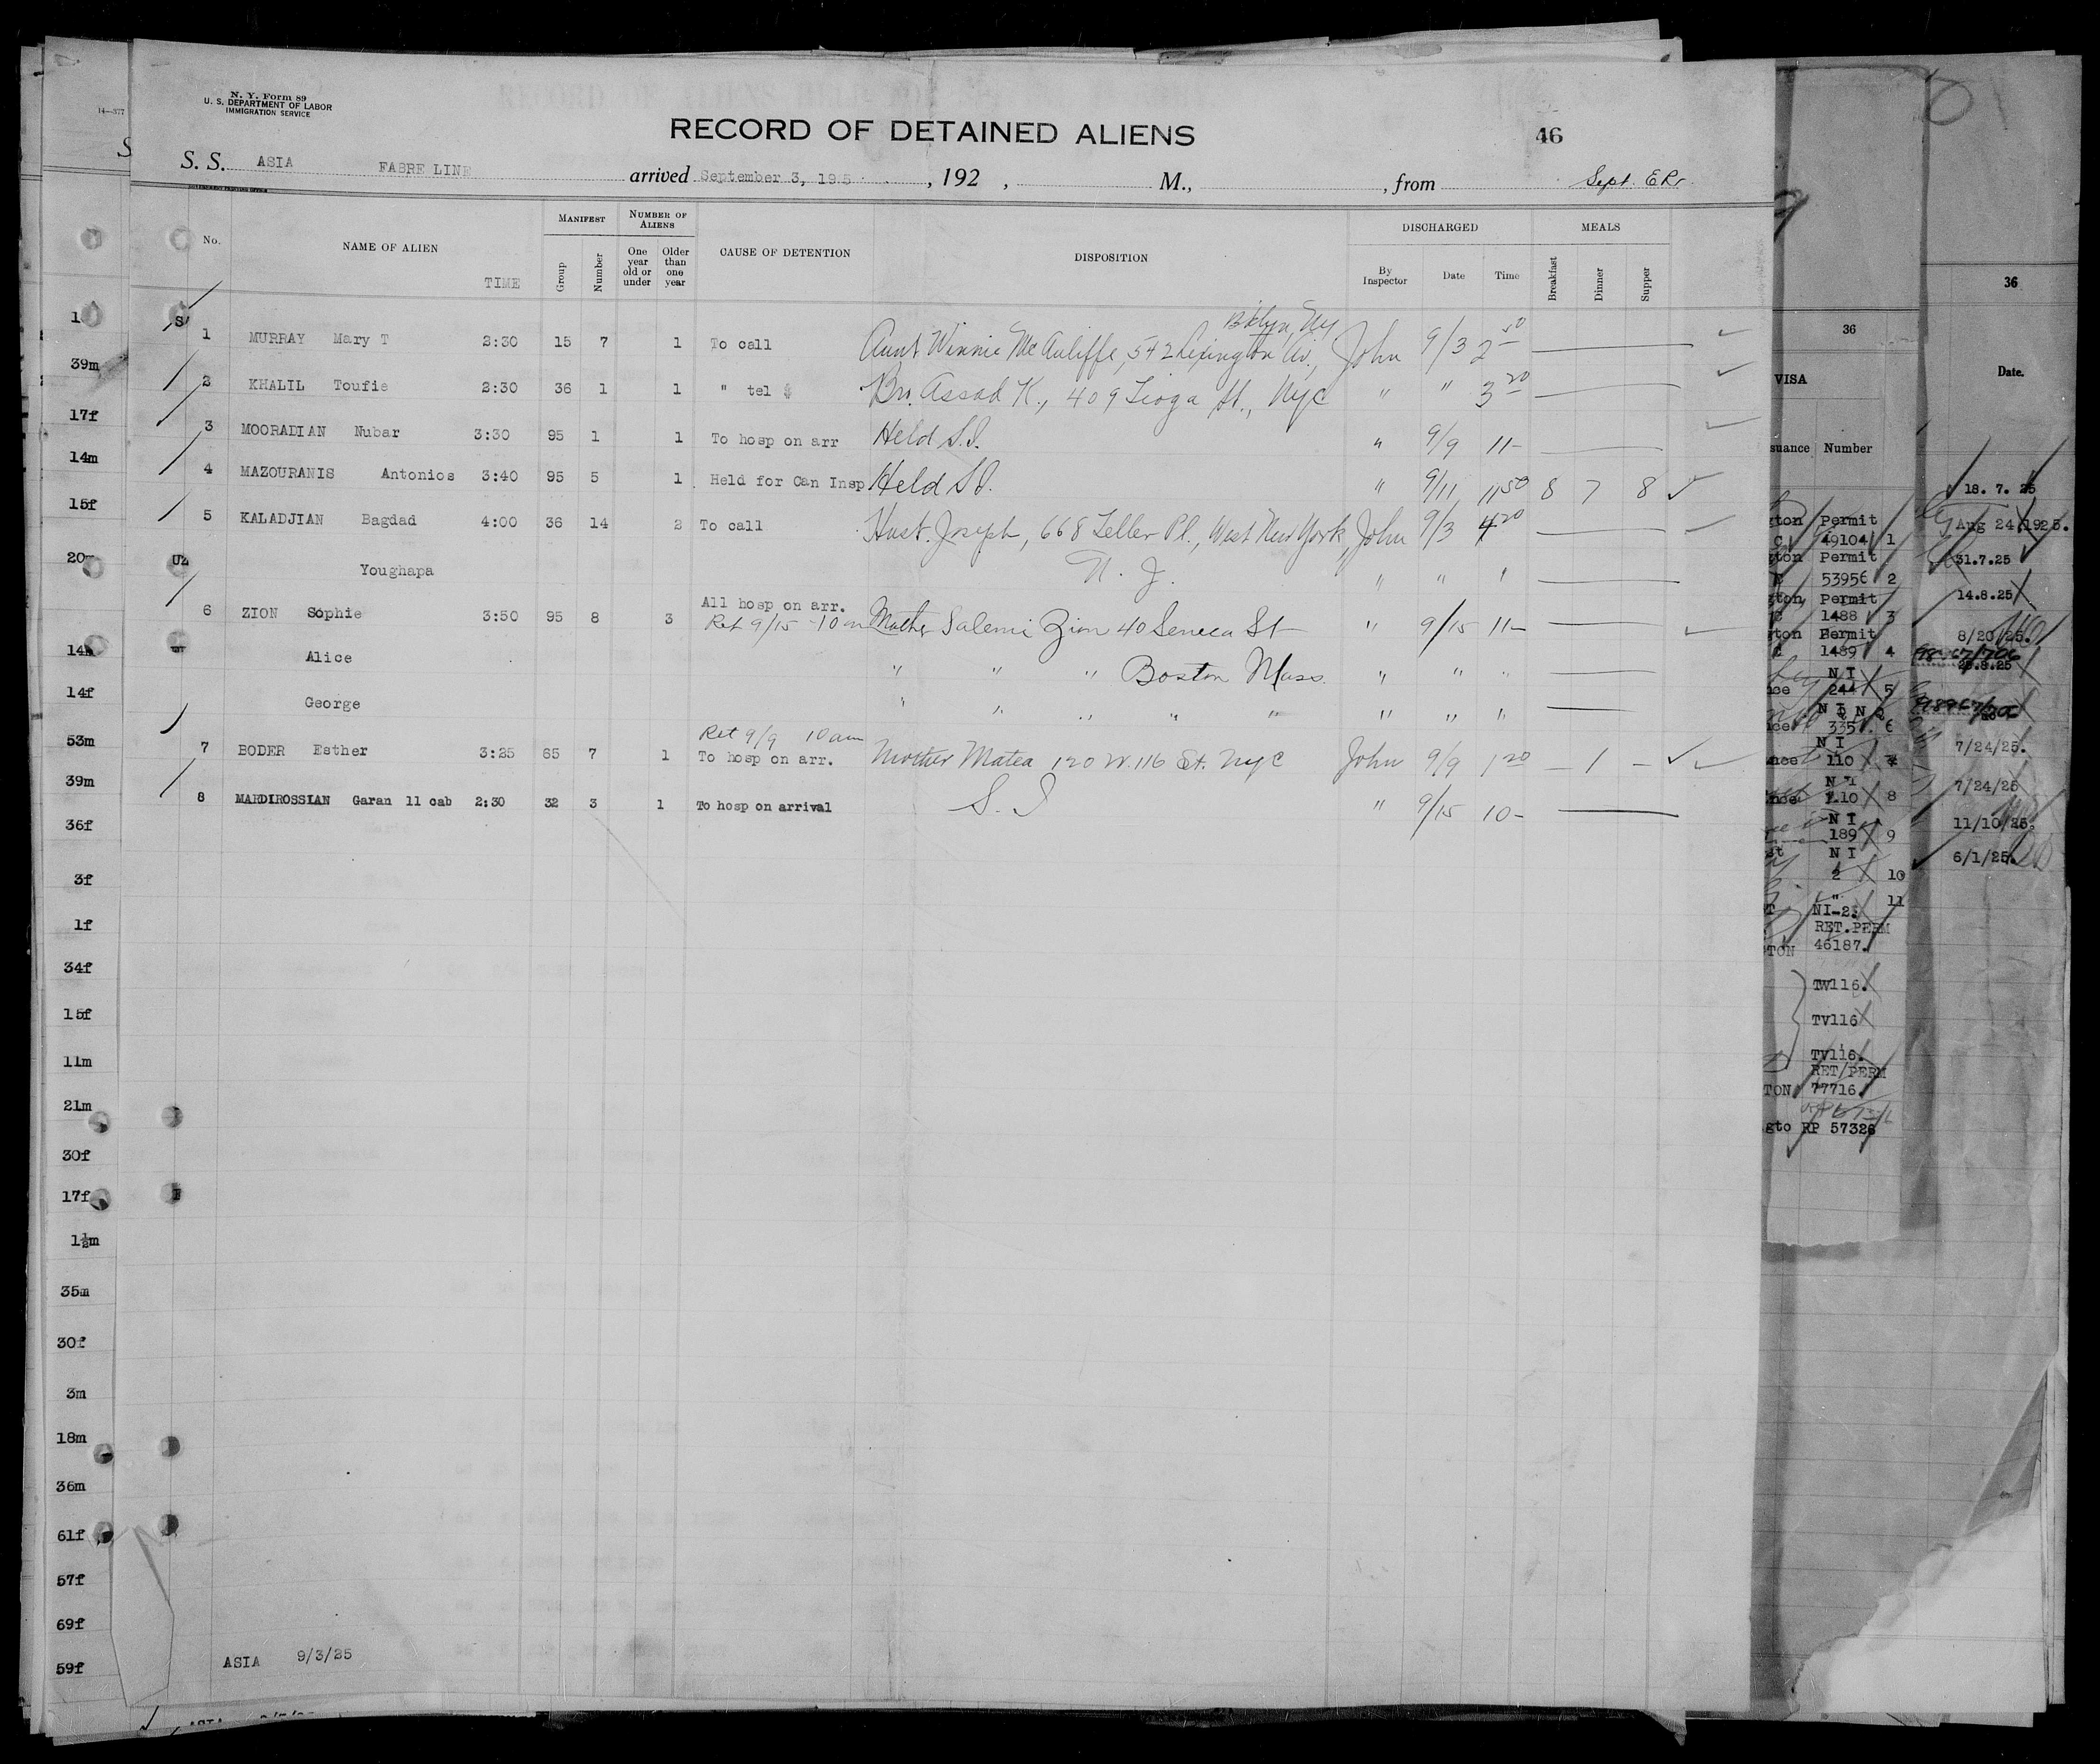 N. Y. Form 89
U. S. DEPARTMENT OF LABOR
IMMIGRATION SERVICE
14—377
RECORD OF DETAINED ALIENS
46
S. S. ASIA FABRE LINE arrived September 3, 195 , 192 , M., , from Sept.
No. NAME OF ALIEN TIME MANIFEST Group Number NUMBER OF ALIENS One year old or under Older than one year CAUSE OF DETENTION DISPOSITION DISCHARGED By Inspector Date Time MEALS Breakfast Dinner Supper
Bklyn, Ny
1 MURRAY Mary T 2:30 15 7 1 To call Aunt Winnie McAuliffe, 542 Lexington Av., John 9/3 2 50
2 KHALIL Toufie 2:30 36 1 1 " tel Bro. Assad K., 409 Tioga St., Nyc " " 3 20
3 MOORADIAN Nubar 3:30 95 1 1 To hosp on arr Held S.I. " 9/9 11-
4 MAZOURANIS Antonios 3:40 95 5 1 Held for Can Insp Held S.I. " 9/11 11 50 8 7 8
5 KALADJIAN Bagdad 4:00 36 14 2 To call Husb. Joseph, 668 Teller Pl., West New York, John 9/3 4 20
Youghapa N. J. " " "
All hosp on arr.
6 ZION Sophie 3:50 95 8 3 Ret 9/15 - 10 am Mother Salemi Zion 40 Seneca St " 9/15 11-
Alice " " " Boston Mass. " " "
George " " " " " " " "
Ret 9/9 10 am
7 BODER Esther 3:25 65 7 1 To hosp on arr. Mother Matea 120 W. 116 St. Nyc John 9/9 1 20 — 1 —
8 MARDIROSSIAN Garan 11 cab 2:30 32 3 1 To hosp on arrival S. I " 9/15 10-
ASIA 9/3/25
39m
17f
14m
15f
14f
53m
39m
36f
3f
1f
34f
15f
11m
21m
30f
17f
1½m
35m
30f
3m
18m
36m
61f
57f
69f
59f
36
VISA
suance Number
gton Permit
49104 1
gton Permit
53956 2
gton Permit
1488 3
gton Permit
1489 4
N I
244 5
335. 6
N I
110
N I
110 8
N I
189 9
N I
2 10
" 11
NI-2
RET.PERM
TON 46187.
TW116.
TV116
TV116.
RET/PERM
TON 77716
gto RP 57326
36
Date.
18. 7. 25
Aug 24 1925.
31.7.25
14.8.25
8/20/25.
25.8.25
7/24/25.
7/24/25
11/10/25.
6/1/25.